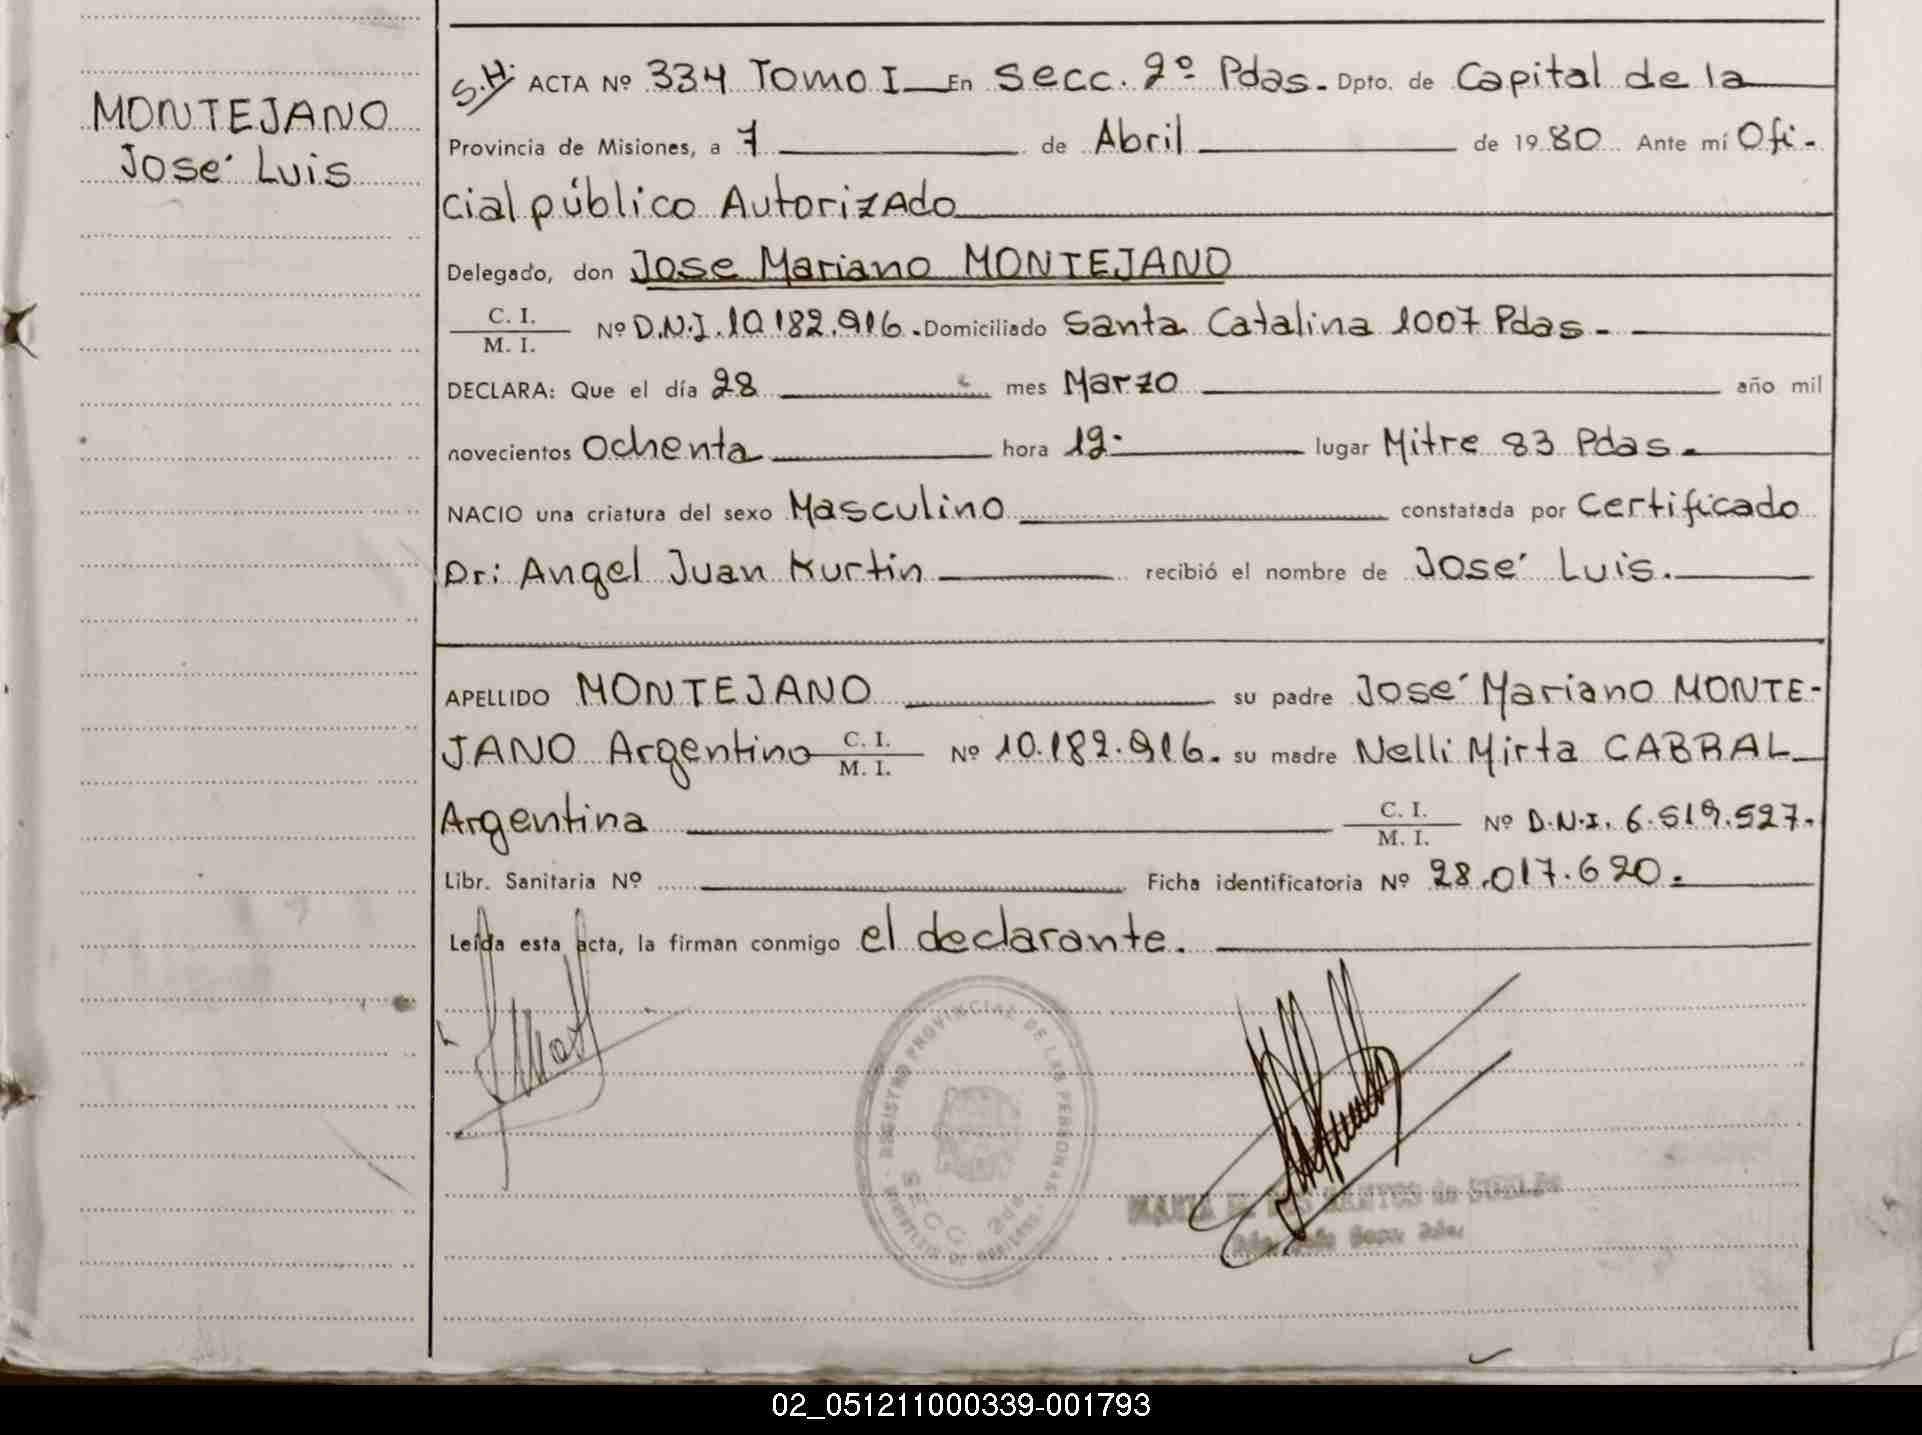 MONTEJANO
José Luis
S.H. ACTA Nº 334 Tomo I En Secc. 2º Pdas. Dpto. de Capital de la
Provincia de Misiones, a 7 de Abril de 1980 Ante mí Ofi-
cial público Autorizado
Delegado, don Jose Mariano MONTEJANO
C. I.
M. I.
Nº D.N.I. 10.182.916. Domiciliado Santa Catalina 1007 Pdas.
DECLARA: Que el día 28 mes Marzo año mil
novecientos Ochenta hora 12 lugar Mitre 83 Pdas.
NACIO una criatura del sexo Masculino constatada por Certificado
Dr: Angel Juan Kurtin recibió el nombre de José Luis.
APELLIDO MONTEJANO su padre José Mariano MONTE-
JANO Argentino C. I. M. I. Nº 10.182.916. su madre Nelli Mirta CABRAL
Argentina C. I. M. I. Nº D.N.I. 6.519.527.
Libr. Sanitaria Nº Ficha identificatoria Nº 28.017.620.
Leída esta acta, la firman conmigo el declarante.
REGISTRO PROVINCIAL DE LAS PERSONAS
SECC. 2da
02_051211000339-001793